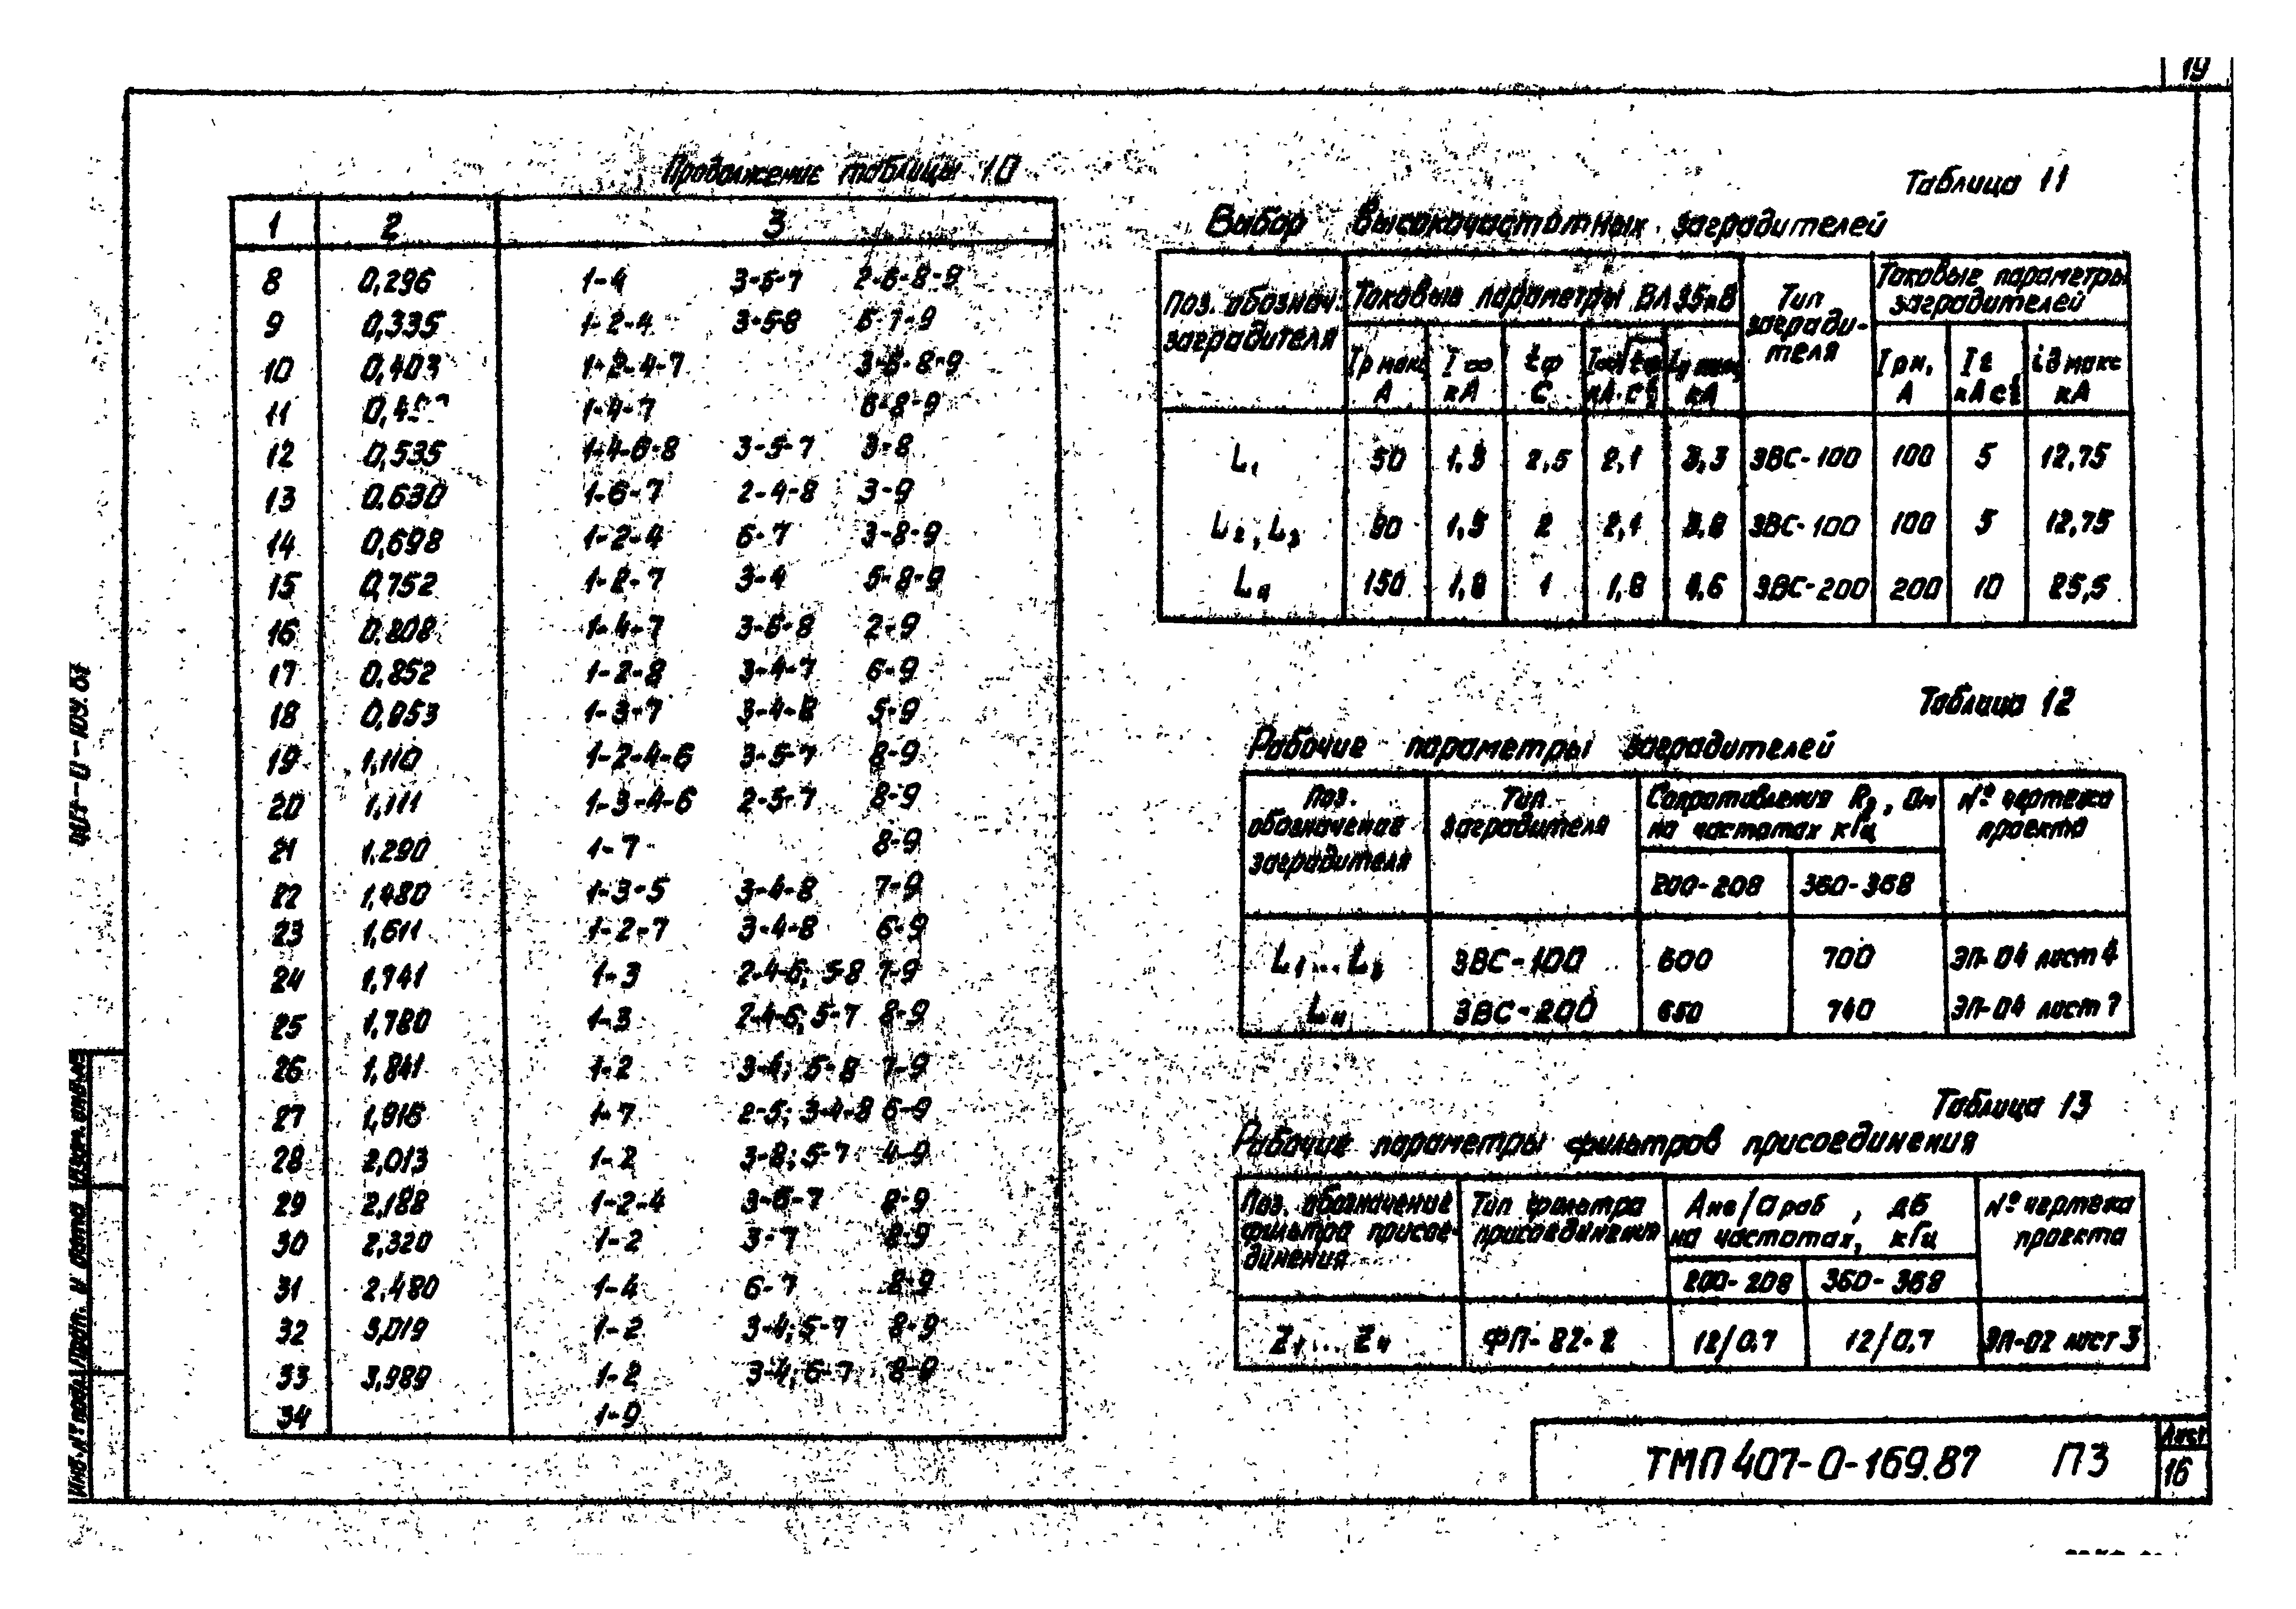 19
Продолжение таблицы 10
1 2 3
8 0,296 1-4 3-5-7 2-6-8-9
9 0,335 1-2-4 3-5-8 6-7-9
10 0,403 1-2-4-7 3-6-8-9
11 1-4-7 6-8-9
12 0,535 1-4-6-8 3-5-7 3-8
13 0.630 1-6-7 2-4-8 3-9
14 0,698 1-2-4 6-7 3-8-9
15 0,752 1-2-7 3-4 5-8-9
16 0.808 1-4-7 3-6-8 2-9
17 0,852 1-2-8 3-4-7 6-9
18 0,953 1-3-7 3-4-8 5-9
19 1,110 1-2-4-6 3-5-7 8-9
20 1,111 1-3-4-6 2-5-7 8-9
21 1.290 1-7 8-9
22 1,480 1-3-5 3-4-8 7-9
23 1,611 1-2-7 3-4-8 6-9
24 1,741 1-3 2-4-6; 5-8 7-9
25 1,780 1-3 2-4-6; 5-7 8-9
26 1,841 1-2 3-4; 5-8 7-9
27 1,916 1-7 2-5; 3-4-8 6-9
28 2,013 1-2 3-8; 5-7 4-9
29 2,188 1-2-4 3-6-7 8-9
30 2,320 1-2 3-7 8-9
31 2,480 1-4 6-7 8-9
32 3,019 1-2 3-4; 5-7 8-9
33 3,989 1-2 3-4; 6-7 8-9
34 1-9
Таблица 11
Выбор высокочастотных заградителей
Поз. обознач. заградителя
Токовые параметры ВЛ 35кВ
Тип загради-
теля
Токовые параметры
заградителей
Iр макс, А I∞ кА tф С I∞√tф кА·с½ кА Iрн, А It кАс½ iд макс кА
L1 50 1,3 2,5 2,1 3,3 ЗВС-100 100 5 12,75
L2, L3 90 1,5 2 2,1 3.8 ЗВС-100 100 5 12,75
L4 150 1,8 1 1,8 4,6 ЗВС-200 200 10 25,5
Таблица 12
Рабочие параметры заградителей
Поз.
обозначение
заградителя
Тип
заградителя
Сопротивления Rз, Ом
на частотах кГц
№ чертежа
проекта
200-208 360-368
L1...L3 ЗВС-100 600 700 ЭП-04 лист 4
L4 ЗВС-200 650 740 ЭП-04 лист 7
Таблица 13
Рабочие параметры фильтров присоединения
Поз. обозначение
фильтра присое-
динения
Тип фильтра
присоединения
Aне/aраб, дБ
на частотах, кГц
№ чертежа
проекта
200-208 360-368
Z1...Z4 ФП-82-2 12/0,7 12/0,7 ЭП-02 лист 3
ТМП 407-0-169.87 ПЗ
Лист
16
Инв.№ подл. Подп. и дата Взам. инв.№